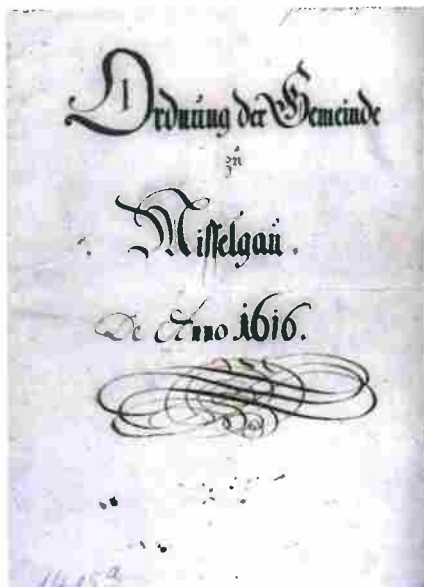 Ordnung der Gemeinde
zu
Mistelgau.
De Anno 1616.